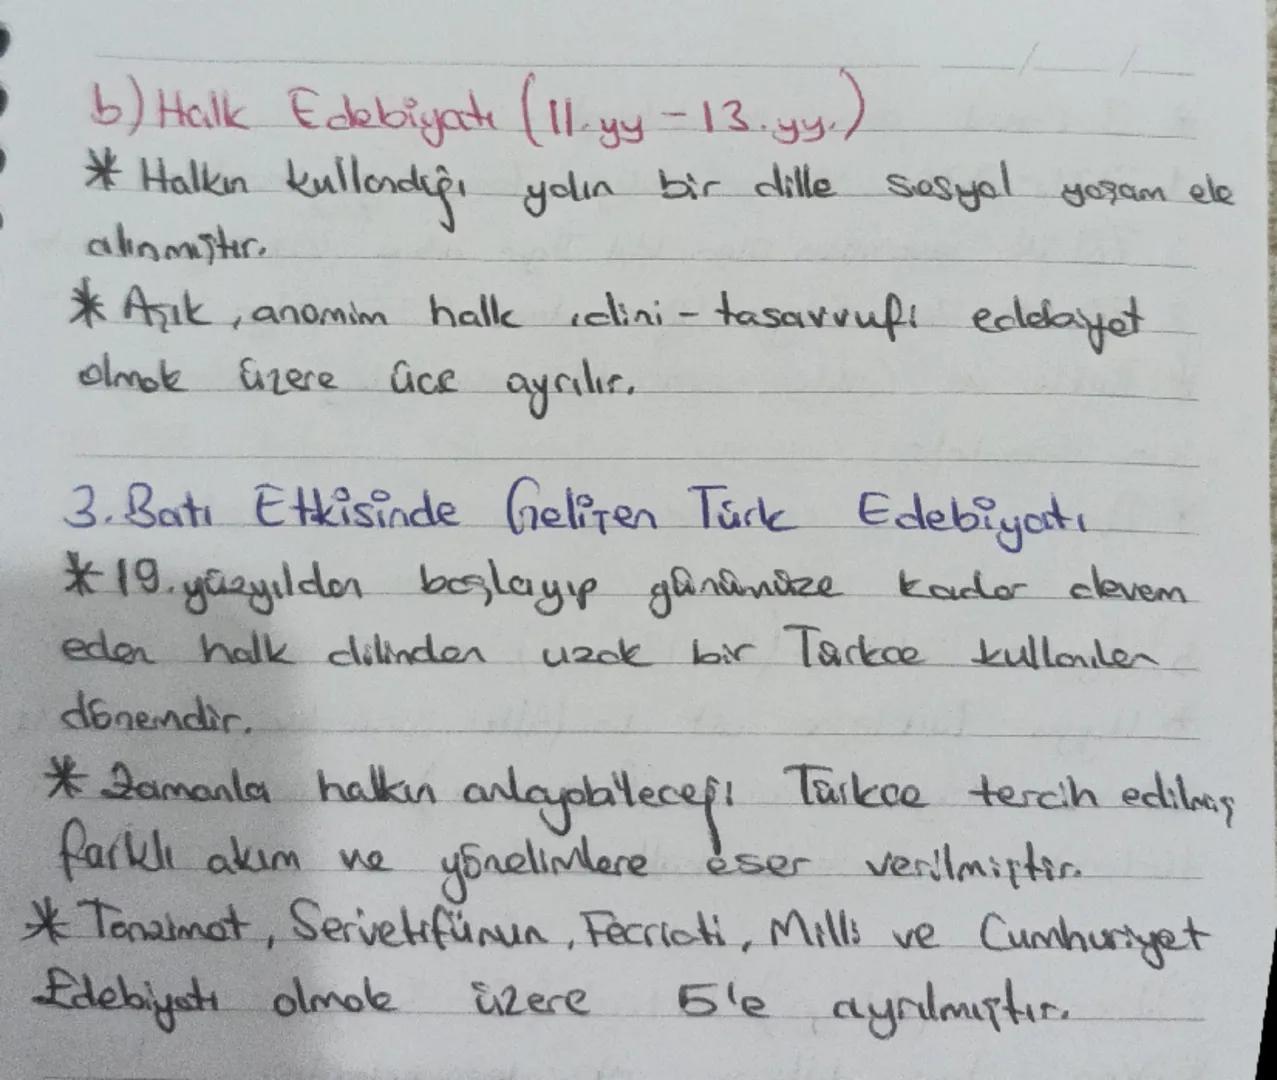 b) Halk Edebiyatı (11.yy - 13.yy.)
* Halkın kullandığı yalın bir dille sosyal yaşam ele
alınmıştır.
* Aşık, anonim halk, dini - tasavvufi edebiyat
olmak üzere üçe ayrılır.
3. Batı Etkisinde Gelişen Türk Edebiyatı
* 19. yüzyıldan başlayıp günümüze kadar devam
eden halk dilinden uzak bir Türkçe kullanılan
dönemdir.
* Zamanla halkın anlayabileceği Türkçe tercih edilmiş
farklı akım ve yönelimlere eser verilmiştir.
* Tanzimat, Servetifünun, Fecriati, Milli ve Cumhuriyet
Edebiyatı olmak üzere 5'e ayrılmıştır.